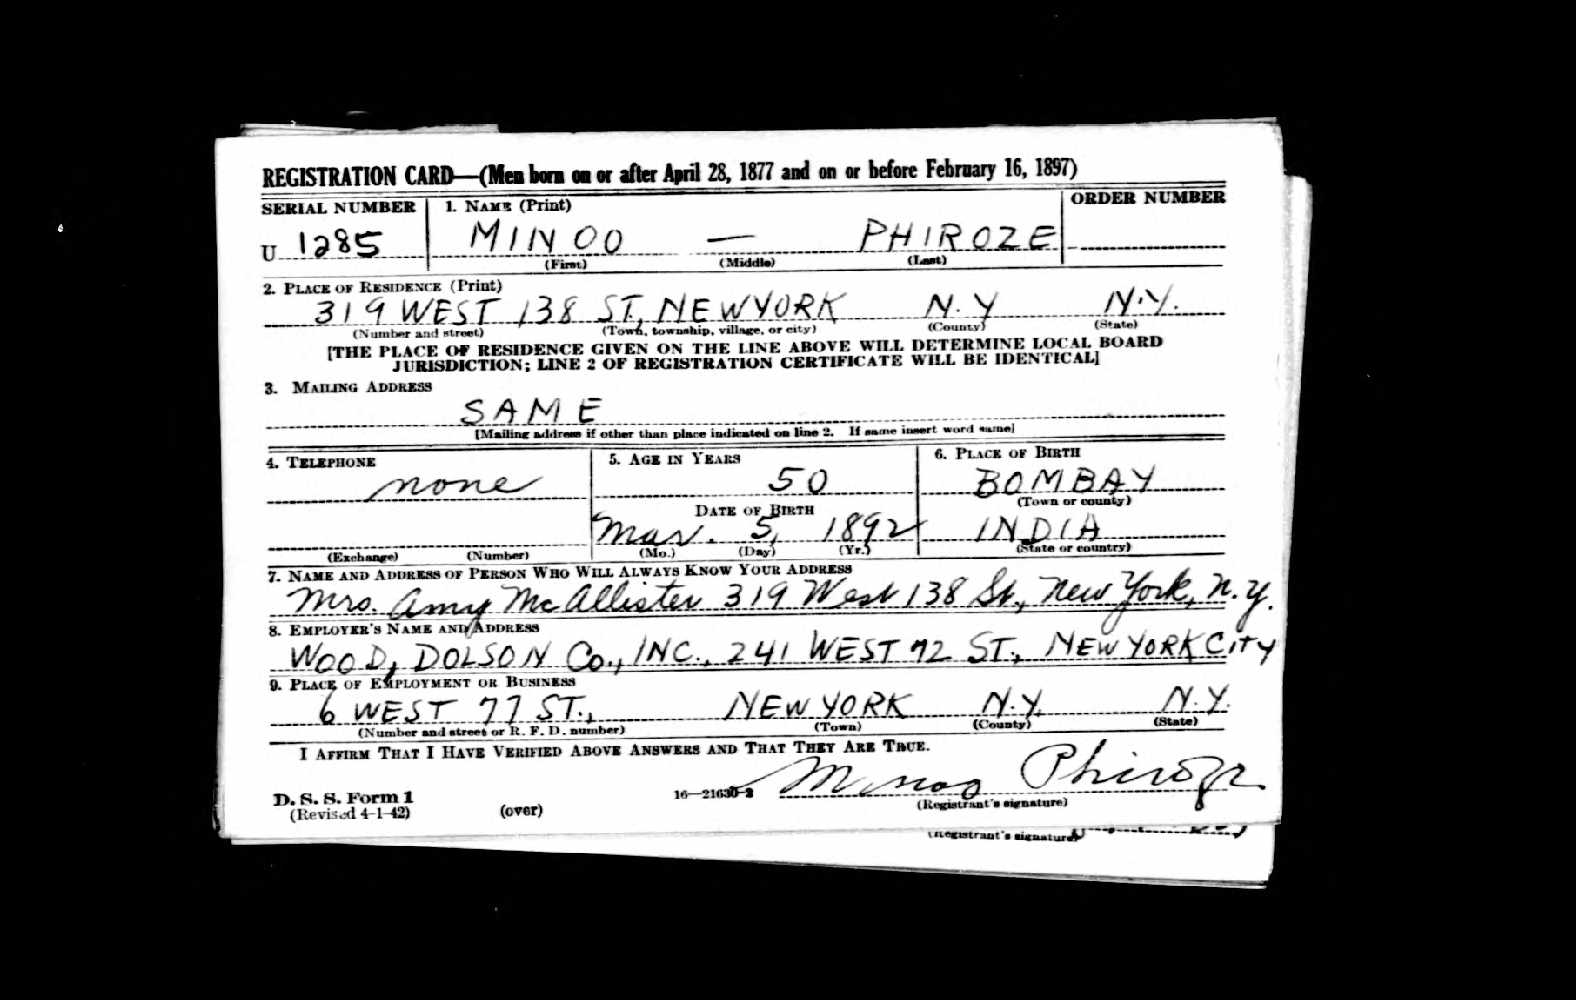 REGISTRATION CARD—(Men born on or after April 28, 1877 and on or before February 16, 1897)
SERIAL NUMBER 1. NAME (Print) ORDER NUMBER
U 1285 MINOO — PHIROZE
(First) (Middle) (Last)
2. PLACE OF RESIDENCE (Print)
319 WEST 138 ST., NEW YORK N.Y N.Y.
(Number and street) (Town, township, village, or city) (County) (State)
[THE PLACE OF RESIDENCE GIVEN ON THE LINE ABOVE WILL DETERMINE LOCAL BOARD
JURISDICTION; LINE 2 OF REGISTRATION CERTIFICATE WILL BE IDENTICAL]
3. MAILING ADDRESS
SAME
[Mailing address if other than place indicated on line 2. If same insert word same]
4. TELEPHONE 5. AGE IN YEARS 6. PLACE OF BIRTH
none 50 BOMBAY
(Town or county)
DATE OF BIRTH
Mar. 5, 1892 INDIA
(Exchange) (Number) (Mo.) (Day) (Yr.) (State or country)
7. NAME AND ADDRESS OF PERSON WHO WILL ALWAYS KNOW YOUR ADDRESS
Mrs. Amy McAllister 319 West 138 St., New York, N.Y.
8. EMPLOYER'S NAME AND ADDRESS
WOOD, DOLSON Co., INC., 241 WEST 72 ST., NEW YORK CITY
9. PLACE OF EMPLOYMENT OR BUSINESS
6 WEST 77 ST., NEW YORK N.Y. N.Y.
(Number and street or R. F. D. number) (Town) (County) (State)
I AFFIRM THAT I HAVE VERIFIED ABOVE ANSWERS AND THAT THEY ARE TRUE.
Minoo Phiroze
D. S. S. Form 1 16—21630-2 (Registrant's signature)
(Revised 4-1-42) (over)
(Registrant's signature)